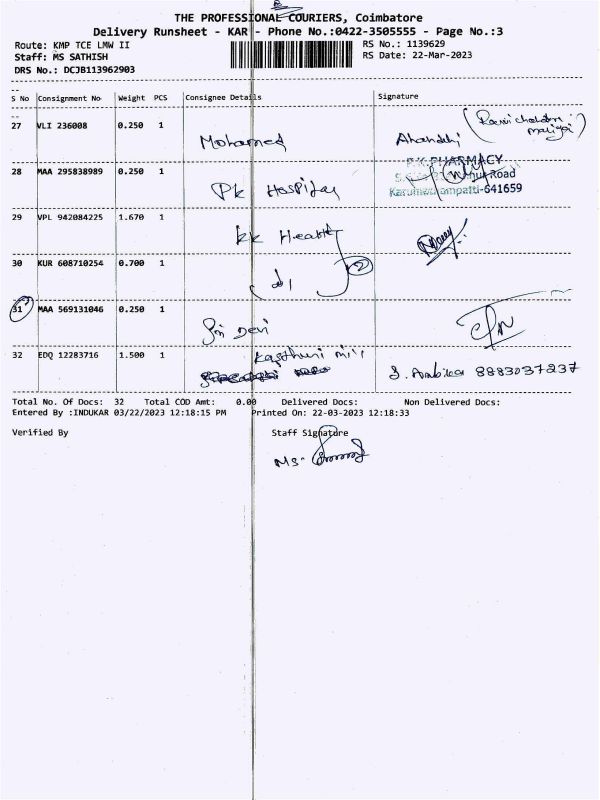 THE PROFESSIONAL COURIERS, Coimbatore
Delivery Runsheet - KAR - Phone No.:0422-3505555 - Page No.:3
Route: KMP TCE LMW II
RS No.: 1139629
Staff: MS SATHISH
RS Date: 22-Mar-2023
DRS No.: DCJB113962903
S No Consignment No Weight PCS Consignee Details Signature
27 VLI 236008 0.250 1 Mohamed
28 MAA 295838989 0.250 1 Pk Hospital
P.K.PHARMACY
Road
Karumathampatti-641659
29 VPL 942084225 1.670 1 kk Health
30 KUR 608710254 0.700 1 2
31 MAA 569131046 0.250 1 Sri Devi
32 EDQ 12283716 1.500 1 Kasthuri mill S. Ambika 8883037237
Total No. Of Docs: 32 Total COD Amt: 0.00 Delivered Docs: Non Delivered Docs:
Entered By :INDUKAR 03/22/2023 12:18:15 PM Printed On: 22-03-2023 12:18:33
Verified By Staff Signature
MS-